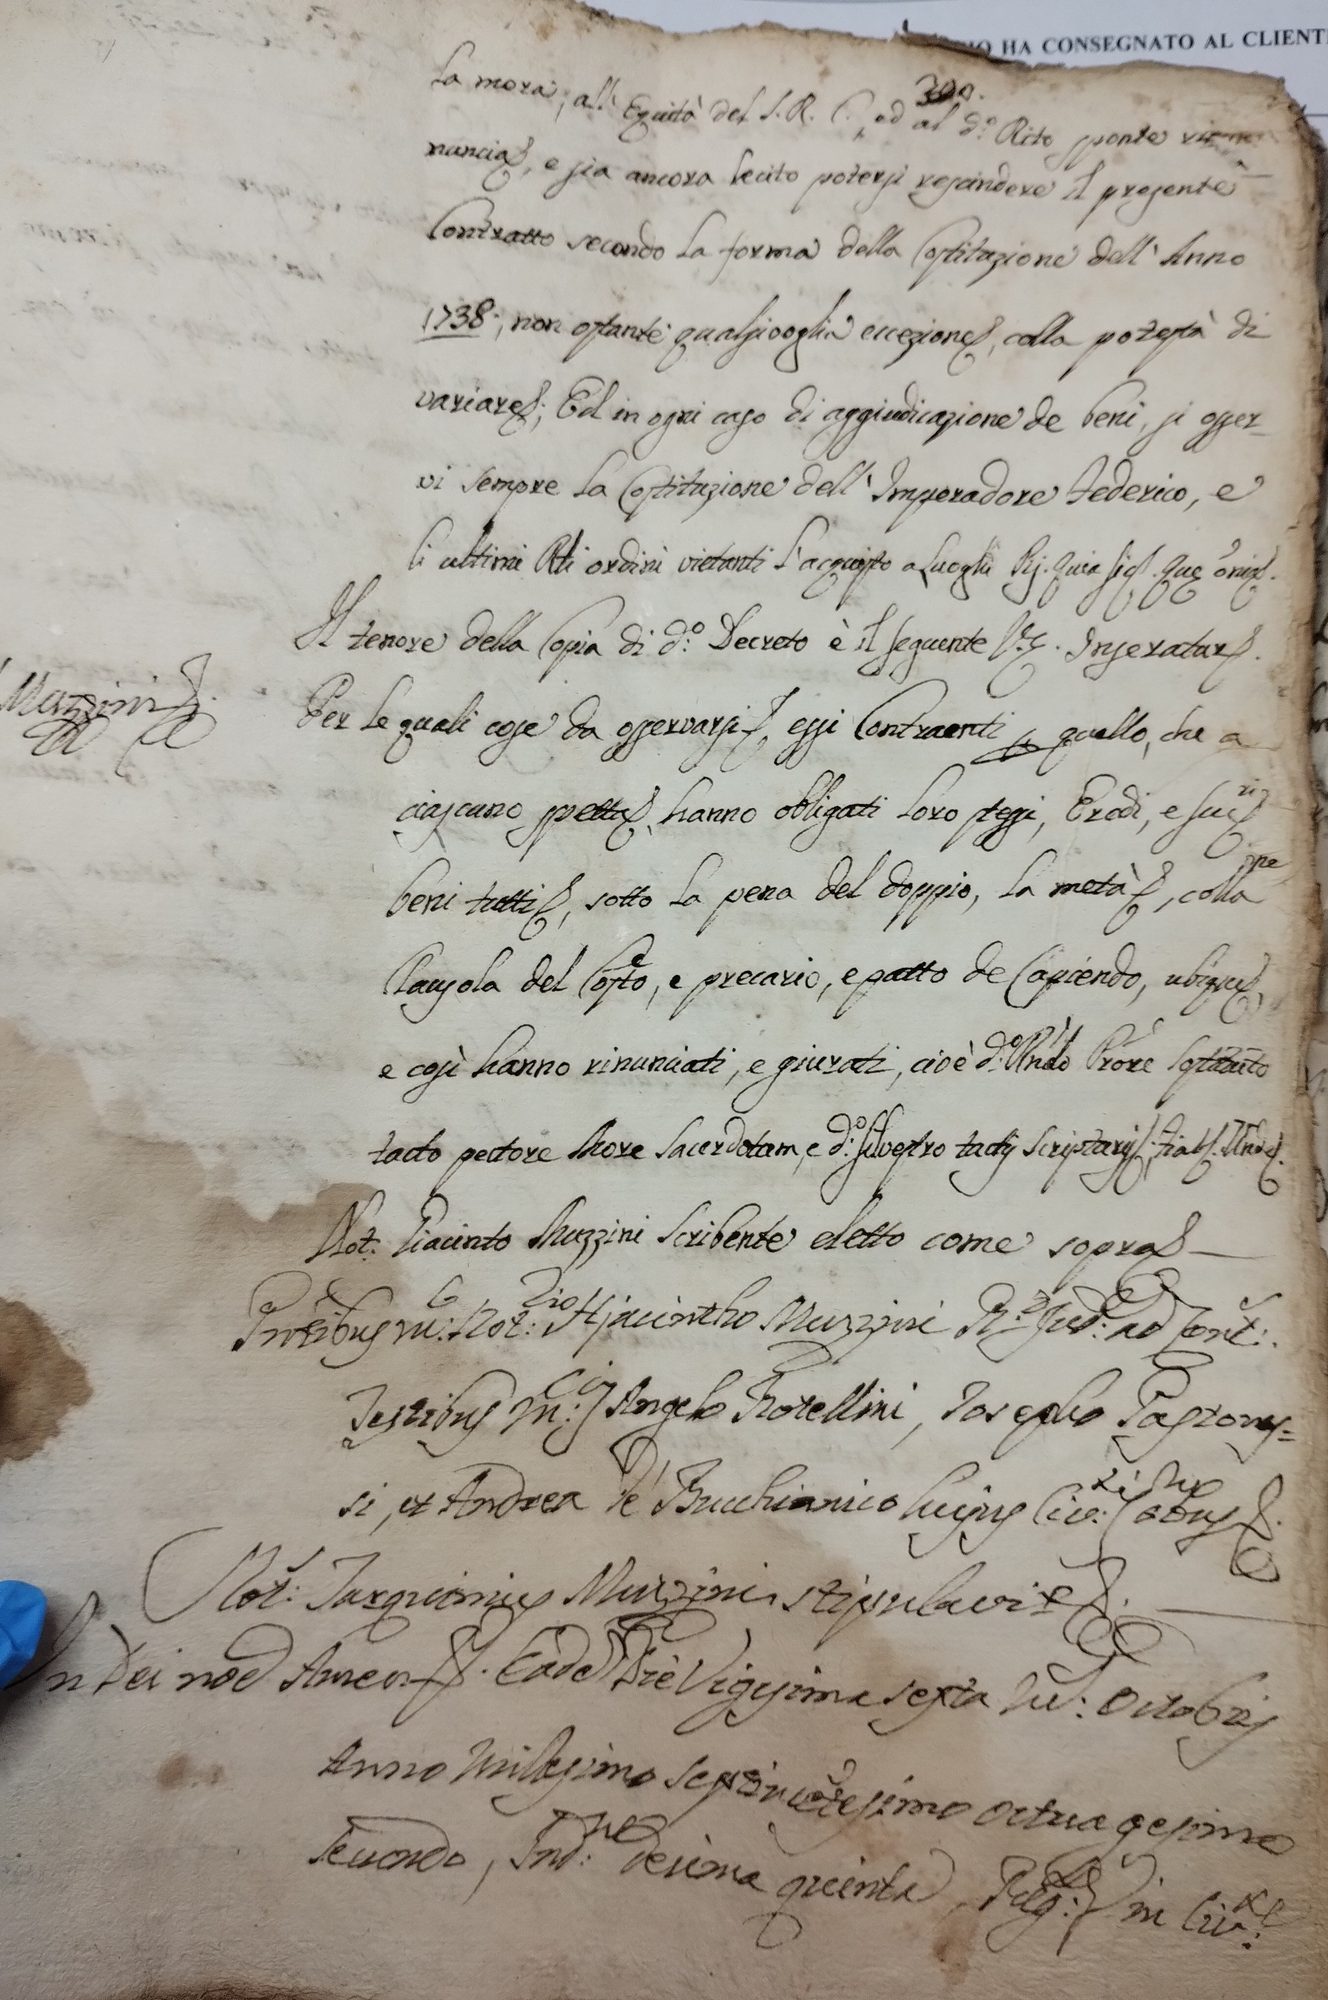 IO HA CONSEGNATO AL CLIENT
300.
la mora, all' Equità del S. R. C., ed al d.º Rito sponte
nunciaɉ, e sia ancora lecito potersi rescindere il presente
Contratto secondo la forma della Costituzione dell' Anno
1738; non ostante qualsivoglia eccezione, colla potestà di
variare; Ed in ogni caso di aggiudicazione de beni, si osser-
vi sempre la Costituzione dell' Imperadore Federico, e
li ultimi Rli ordini vietanti l'acquisto a Luoghi Pij. Quia sic. Que
Il tenore della Copia di d.º Decreto è il seguente. Inseratur.
Muzzini
Per le quali cose da osservarsi, essi Contraenti p quello, che a
ciascuno spetta, hanno obligati loro stessi, Eredi, e suc.ri
beni tutti, sotto la pena del doppio, la metà, colla
Clausola del Costto, e precario, e patto de Capiendo, ubique
e così hanno rinunciati, e giurati, cioè d.º Rndo Prore Sostituto
tacto pectore More Sacerdotum, e d.º Silvestro tactis scripturis
Not. Giacinto Muzzini Scribente eletto come sopra
Pntibus m: Not:rio Hjacintho Muzzini R.º Jud: ad Cont:
Testibus m:cis Angelo Rotellini, Josepho Pastores=
si, et Andrea de Bucchianico hujus Civ:
Not: Tarquinius Muzzini stipulavit
In Dei noe Amen. Eade Die Vigesima sexta m: Octobris
Anno Millesimo septincetesimo octuagesimo
secundo, Ind:ne decima quinta, in Civ: